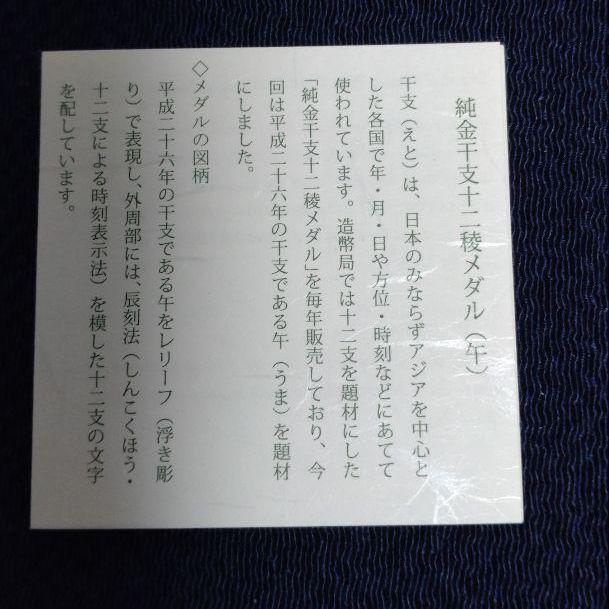 純金干支十二稜メダル（午）
干支（えと）は、日本のみならずアジアを中心と
した各国で年・月・日や方位・時刻などにあてて
使われています。造幣局では十二支を題材にした
「純金干支十二稜メダル」を毎年販売しており、今
回は平成二十六年の干支である午（うま）を題材
にしました。
◇メダルの図柄
平成二十六年の干支である午をレリーフ（浮き彫
り）で表現し、外周部には、辰刻法（しんこくほう・
十二支による時刻表示法）を模した十二支の文字
を配しています。